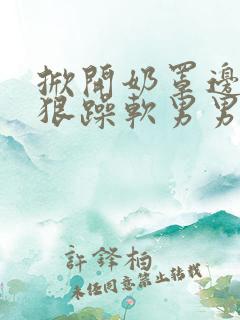 掀開奶罩邊
狠躁軟男男
許鋒柏
未经同意禁止转载